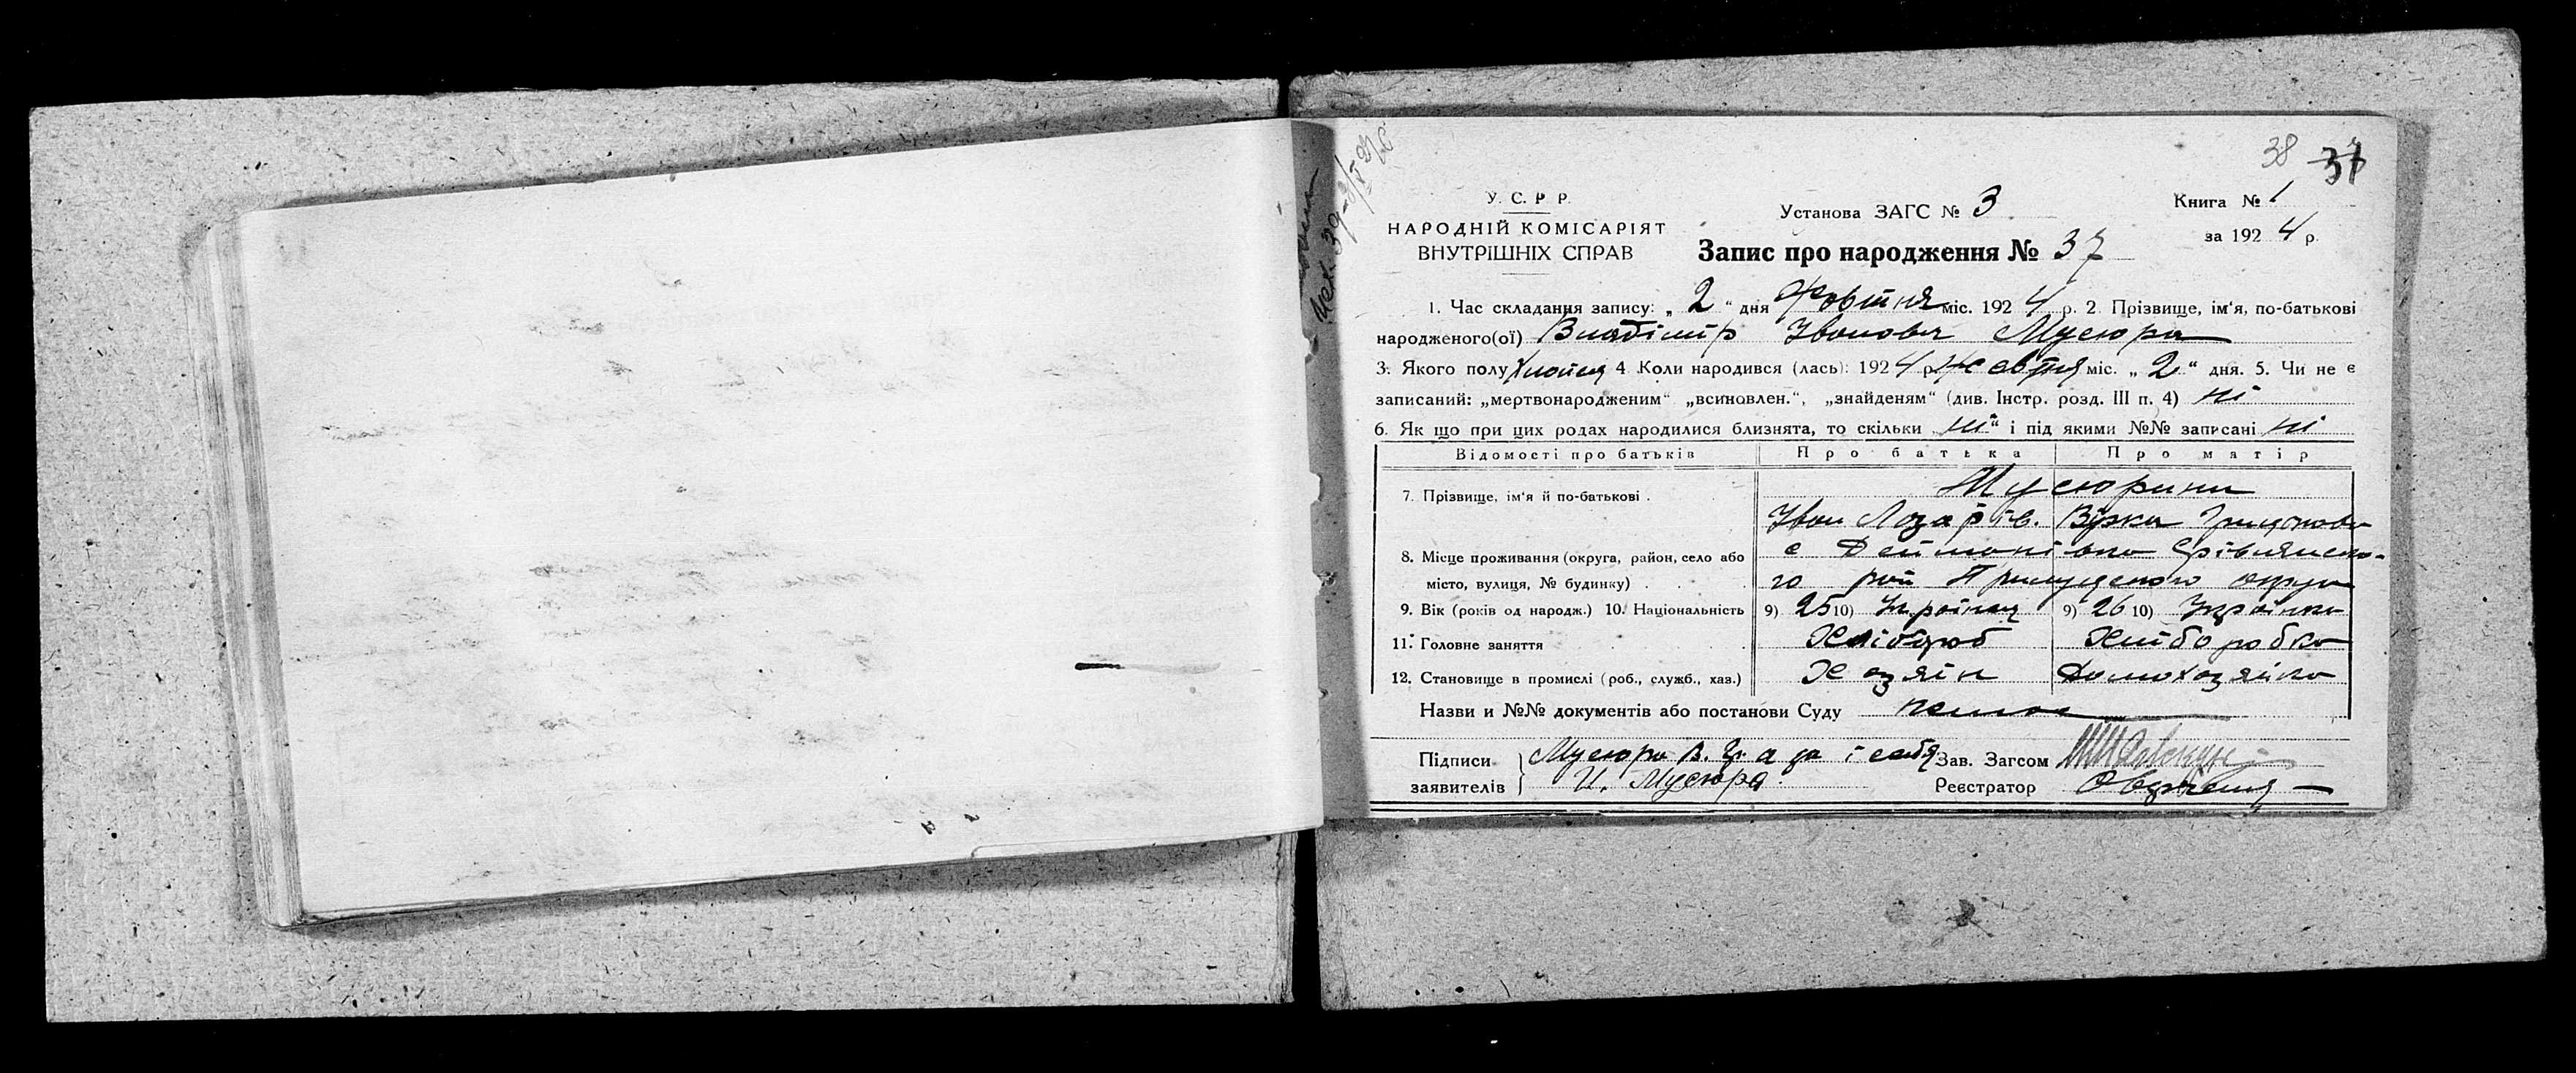 38 37
У. С. Р Р.
НАРОДНІЙ КОМІСАРІЯТ
ВНУТРІШНІХ СПРАВ
Установа ЗАГС № 3
Запис про народження № 37
Книга № 1
за 1924 р.
1. Час складання запису: „2“ дня Жовтня міс. 1924 р. 2. Прізвище, ім‘я, по-батькові
народженого(ої) Владімір Іванович Мусюра
3. Якого полу Хлопець 4 Коли народився (лась): 1924 р. Жовтня міс. „2“ дня. 5. Чи не є
записаний: „мертвонародженим“ „всиновлен.“, „знайденям“ (див. Інстр. розд. III п. 4) ні
6. Як що при цих родах народилися близнята, то скільки „ні“ і під якими №№ записані ні
Відомості про батьків Про батька Про матір
7. Прізвище, ім‘я й по-батькові . Мусюрини
Іван Лазарів. Вірка
8. Місце проживання (округа, район, село або с Деймонівка Срібнянсько-
місто, вулиця, № будинку) . го рай Прилуцького округи
9. Вік (років од народж.) 10. Національність 9) 25 10) Українец 9) 26 10) Українка
11. Головне заняття Хлібороб Хліборобка
12. Становище в промислі (роб., служб., хаз.) Хазяїн Домохазяйка
Назви и №№ документів або постанови Суду немає
Підписи Мусюра В. Гр. а за і себя Зав. Загсом
заявителів И. Мусюра Реєстратор